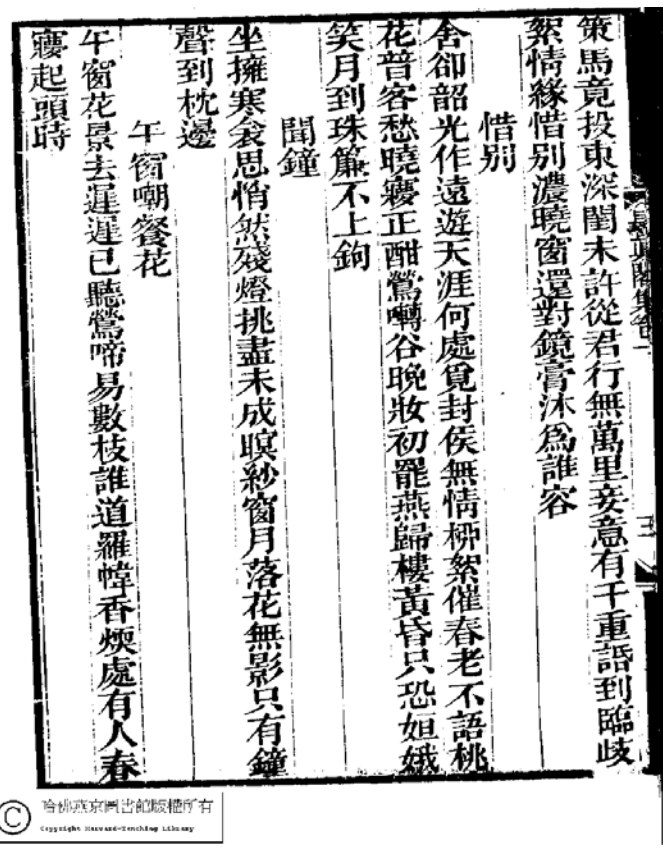 長真閣集卷一
三
策馬竟投東深閨未許從君行無萬里妾意有千重語到臨歧
絮情緣惜别濃曉窗還對鏡膏沐爲誰容
惜别
舍卻韶光作遠遊天涯何處覓封侯無情栁絮催春老不語桃
花替客愁曉㝱正酣鶯囀谷晚妝初罷燕歸樓黃昏只恐姮娥
笑月到珠簾不上鉤
聞鐘
坐擁寒衾思悄然殘燈挑盡未成瞑紗窗月落花無影只有鐘
聲到枕邊
午窗嘲餐花
午窗花景去遲遲已聽鶯啼易數枝誰道羅幃香煗處有人春
㝱起頭時
哈佛燕京圖書館版權所有
Copyright Harvard-Yenching Library